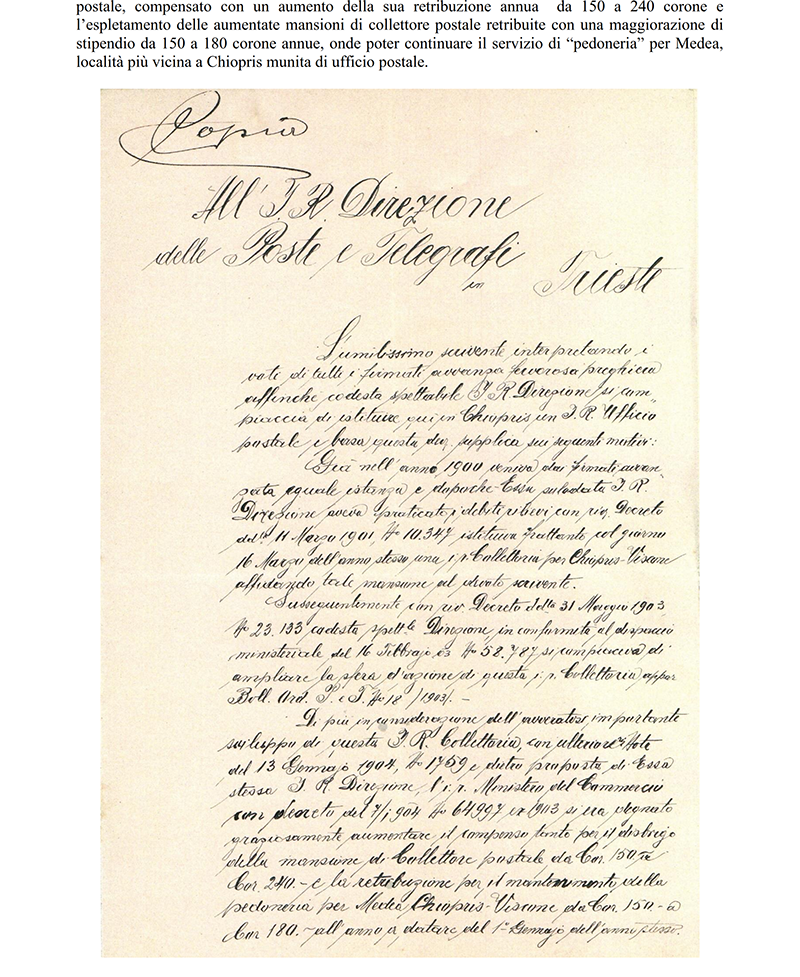 postale, compensato con un aumento della sua retribuzione annua da 150 a 240 corone e
l’espletamento delle aumentate mansioni di collettore postale retribuite con una maggiorazione di
stipendio da 150 a 180 corone annue, onde poter continuare il servizio di “pedoneria” per Medea,
località più vicina a Chiopris munita di ufficio postale.
Copia
All' I. R. Direzione
delle Poste e Telegrafi
in Trieste
L'umilissimo scrivente interpretando i
voti di tutti i firmati avvanza fervorosa preghiera
affinchè codesta spettabile I. R. Direzione si com„
piaccia di istituire qui in Chiopris, un I. R. Ufficio
postale e basa questa dev. supplica sui seguenti motivi:
Già nell'anno 1900 veniva dai firmati avvan„
zata eguale istanza e dopochè Essa sulodata I. R.
Direzione aveva praticato i debiti rilievi con riv. Decreto
del 11 Marzo 1901, No 10.347 istituiva frattanto col giorno
16 Marzo dell'anno stesso una i. r. Collettoria per Chiopris-Viscone
affidando tale mansione al devoto scrivente.
Susseguentemente con riv. Decreto ddto 31 Maggio 1903
No 23.133 codesta spett.le Direzione, in conformità al dispaccio
ministeriale del 16 Febbrajo No 58.787 si compiaceva di
ampliare la sfera d'azione di questa i. r. Collettoria appar
Boll. Ord. P. e T. No 18 /1903/. -
Di più in considerazione dell' avveratosi importante
sviluppo di questa I. R. Collettoria, con ulteriore Nota
del 13 Gennajo 1904, No 1759 e dietro proposta di Essa
stessa I. R. Direzione, l'i. r. Ministero del Commercio
con decreto del 7/1 904 No 64997 ex 1903 si era degnato
graziosamente aumentare il compenso tanto per il disbrigo
della mansione di Collettore postale da Cor. 150.- a
Cor. 240.- e la retribuzione per il mantenimento della
pedoneria per Medea Chiopris-Viscone da Cor. 150.- a
Cor 180.- all'anno a datare del 1o Gennajo dell'anno stesso.